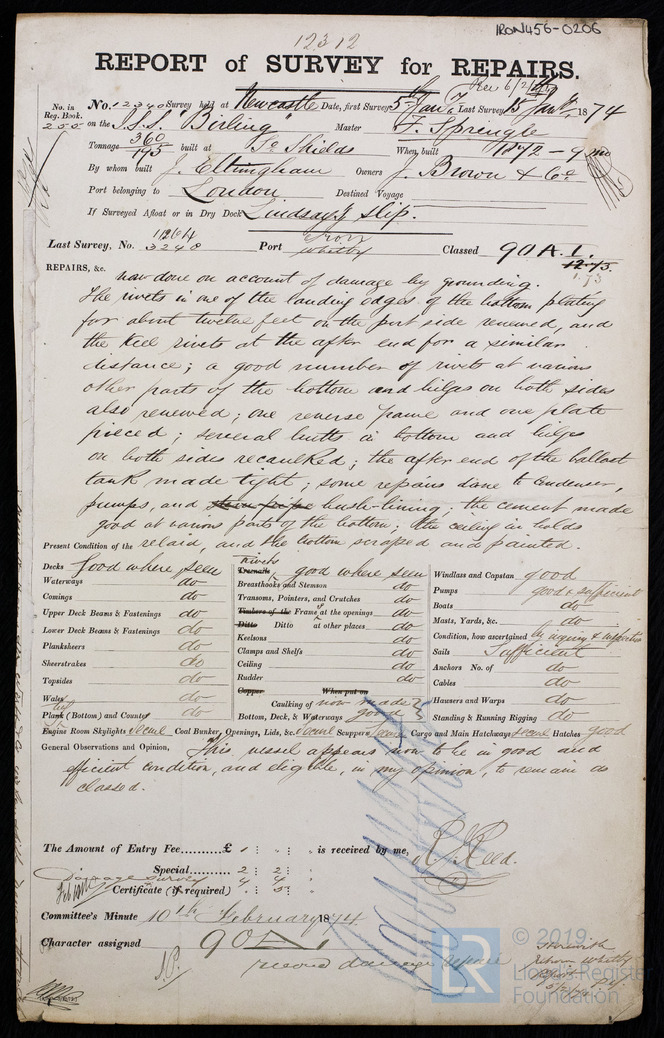 IRON456-0206
12312
REPORT of SURVEY for REPAIRS.
Rec 6/2/74
No. in Reg. Book. 255
No. 12340 Survey held at Newcastle Date, first Survey 5 Jany Last Survey 15 Jany 1874
on the I.S.S. "Birling" Master F. Sprengle
Tonnage 360 195 built at So Shields When built 1872 - 9 mo
By whom built J. Eltringham Owners J. Brown & Co
Port belonging to London Destined Voyage
If Surveyed Afloat or in Dry Dock Lindsay's slip.
Last Survey, No. 3240 Port Iron Whitby Classed 90 A.1.
12.73.
REPAIRS, &c. now done on account of damage by grounding.
The rivets in one of the landing edges of the bottom plating
for about twelve feet on the port side renewed, and
the keel rivets at the after end for a similar
distance; a good number of rivets at various
other parts of the bottom and bilges on both sides
also renewed; one reverse frame and one plate
pieced; several butts in bottom and bilges
on both sides recaulked; the after end of the ballast
tank made tight; some repairs done to condenser,
pumps, and stern pipe bush-lining; the cement made
good at various parts of the bottom; the ceiling in holds
relaid, and the bottom scraped and painted.
Present Condition of the
Decks Good where seen
Waterways do
Comings do
Upper Deck Beams & Fastenings do
Lower Deck Beams & Fastenings do
Planksheers do
Sheerstrakes do
Topsides do
Wales do
Plank (Bottom) and Counter do
Rivets
Treenails good where seen
Breasthooks and Stemson do
Transoms, Pointers, and Crutches do
Timbers of the Frame at the openings do
Ditto Ditto at other places do
Keelsons do
Clamps and Shelfs do
Ceiling do
Rudder do
Copper When put on
Caulking of now made
Bottom, Deck, & Waterways good
Windlass and Capstan good
Pumps good & sufficient
Boats do
Masts, Yards, &c. do
Condition, how ascertained by inquiry & inspection
Sails Sufficient
Anchors No. of do
Cables do
Hawsers and Warps do
Standing & Running Rigging do
Engine Room Skylights Secure Coal Bunker, Openings, Lids, &c. Secure Scuppers Secure Cargo and Main Hatchways secure Hatches good
General Observations and Opinion, This vessel appears now to be in good and
efficient condition, and eligible, in my opinion, to remain as
classed.
The Amount of Entry Fee..........£ 1 : " : " is received by me,
R. Reed.
Special.......... 2 : 2 : "
Damage Survey 4 : 4 : "
Certificate (if required) " : 5 : "
Committee's Minute 10th February 1874
Character assigned 90A1
record damage repairs
Herewith
return Whitby
Report
© 2019
LR
Lloyd's Register
Foundation